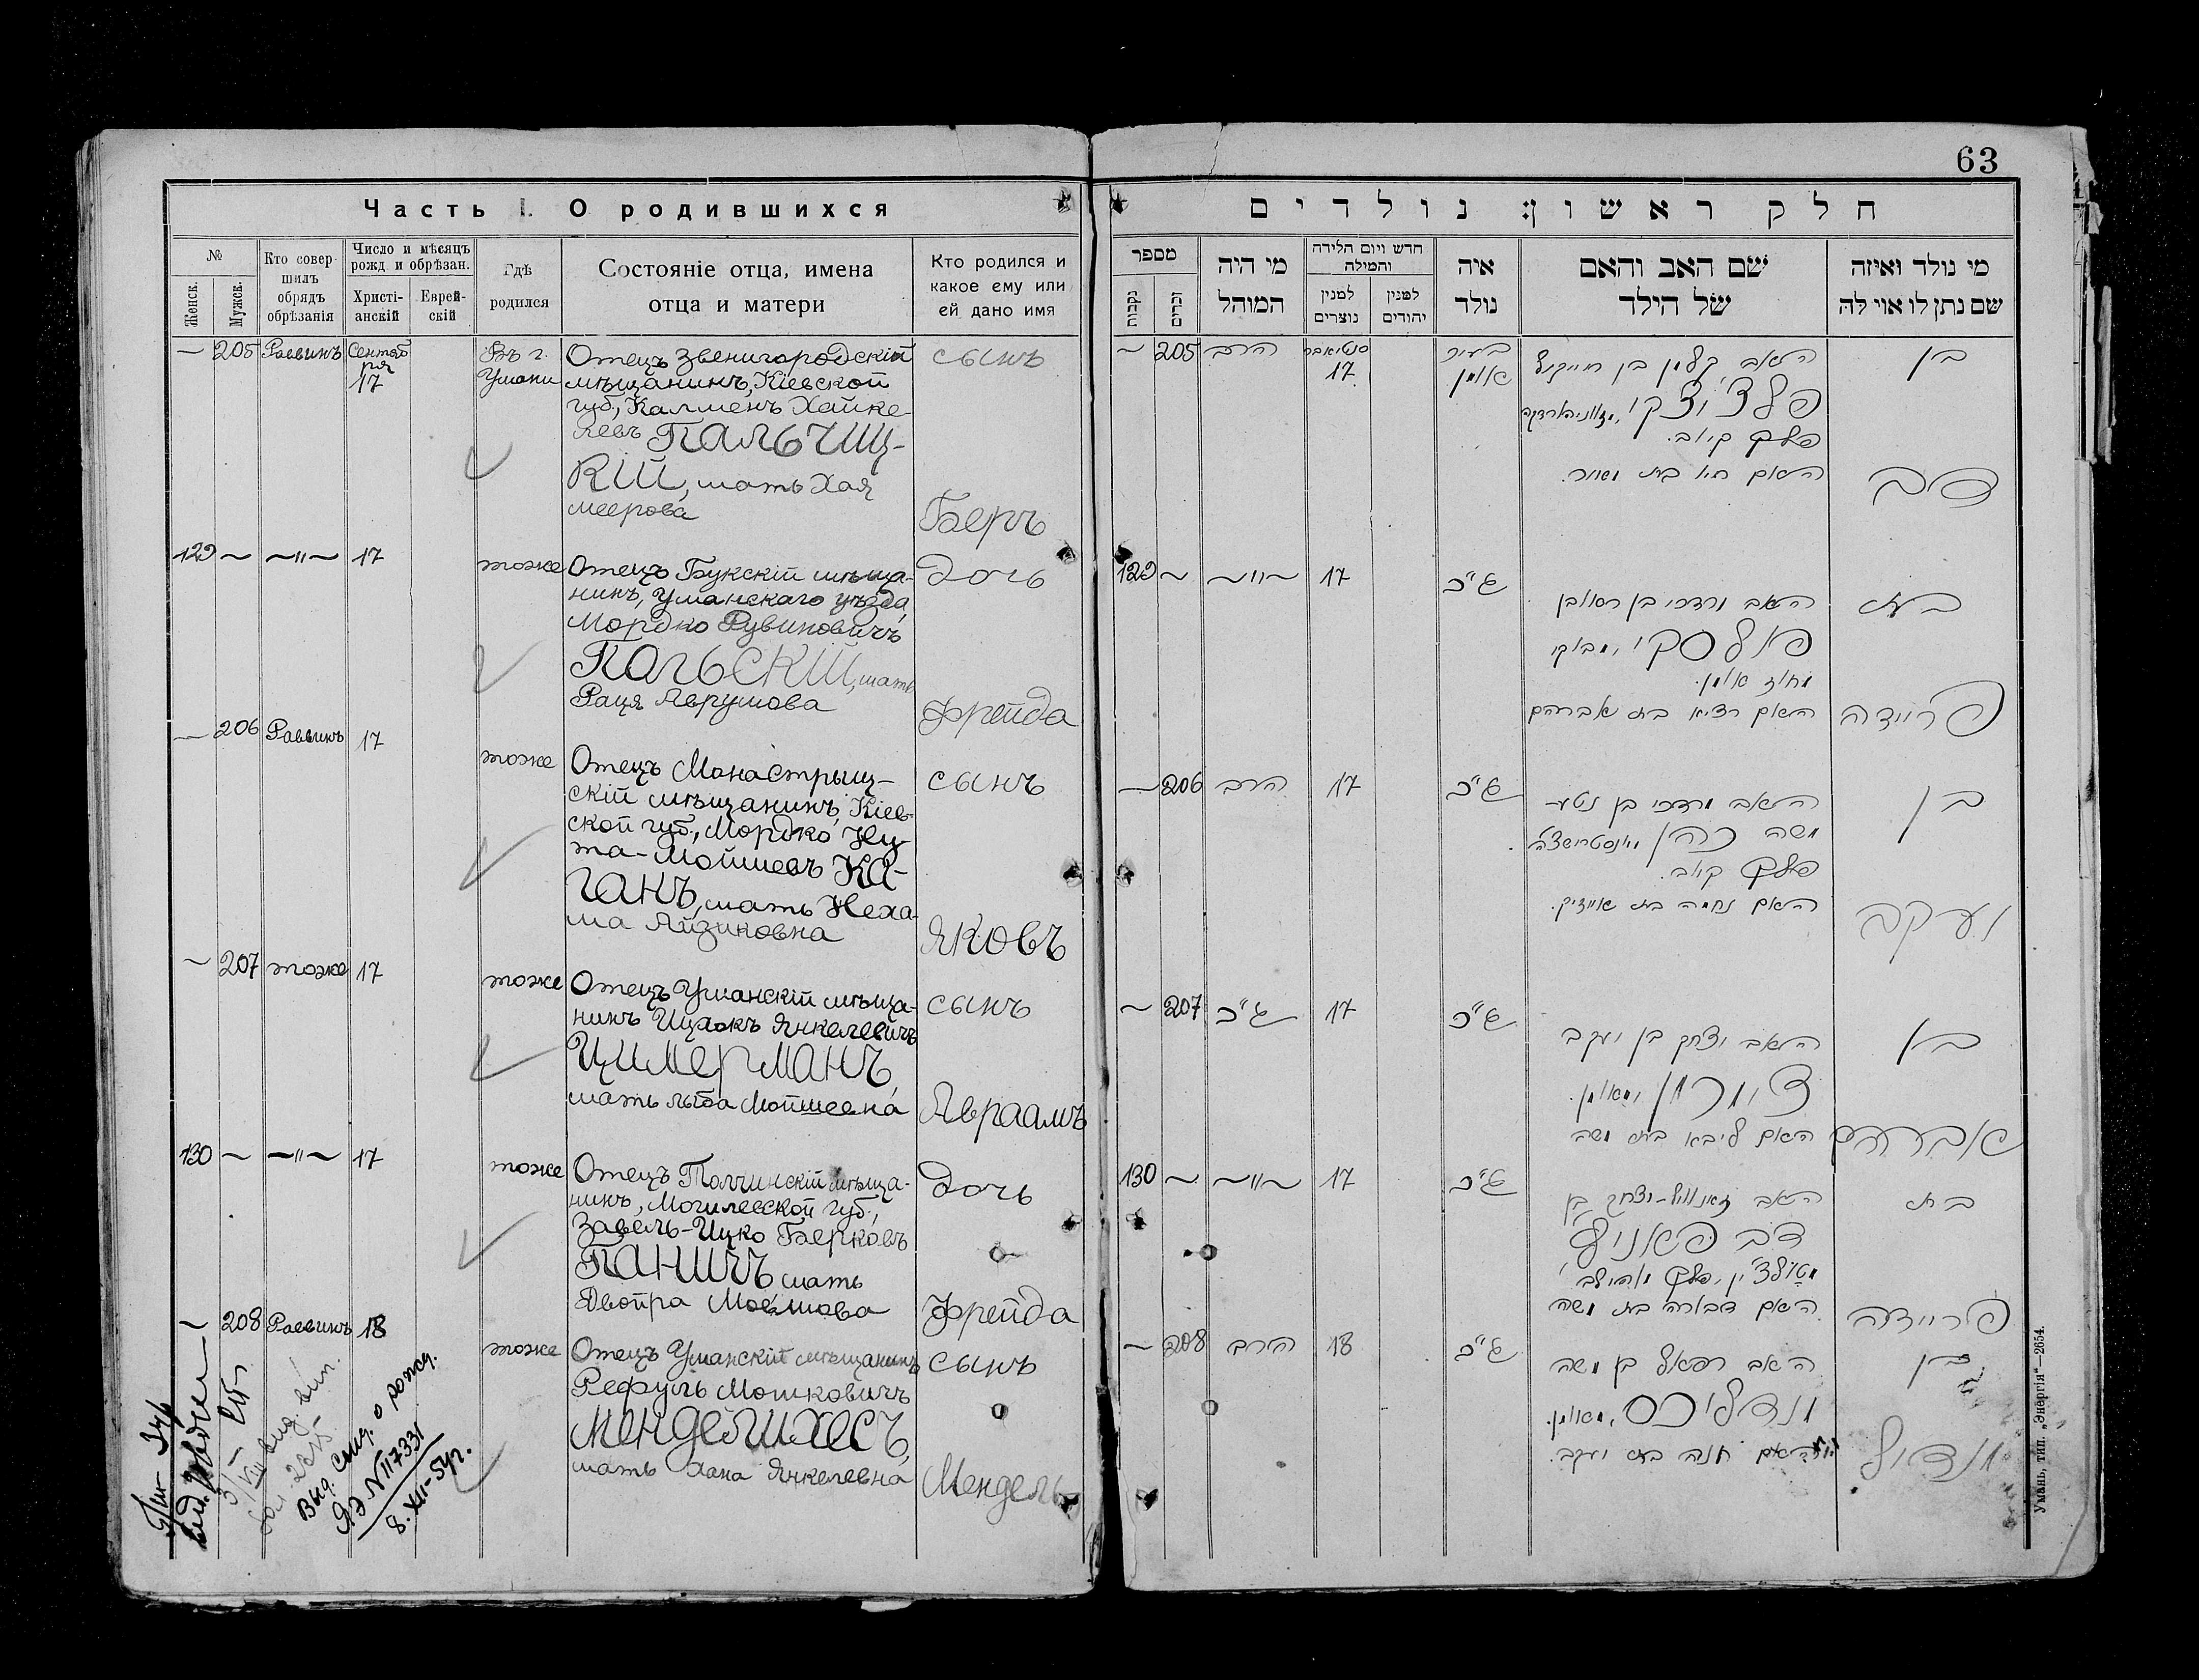 63
Часть I. О родившихся
№
Женск.
Мужск.
Кто совер-
шилъ
обрядъ
обрѣзанія
Число и мѣсяцъ
рожд. и обрѣзан.
Христі-
анскій
Еврей-
скій
Гдѣ
родился
Состояніе отца, имена
отца и матери
Кто родился и
какое ему или
ей дано имя
— 205 Раввинъ Сентяб
ря
17
Въ г.
Умани
Отецъ Звенигородскій
мѣщанинъ, Кіевской
губ., Калменъ Хайке-
левъ Пальчиц-
кій, мать Хая
Меерова
сынъ
Беръ
129 — —"— 17 тоже
Отецъ Букскій мѣща-
нинъ, Уманскаго уѣзда
Мордко Рувиновичъ
Польскій, мать
Рася Аврумова
дочь
Фрейда
— 206 Раввинъ 17 тоже
Отецъ Монастрыщ-
скій мѣщанинъ, Кіев-
ской губ., Мордко Ну-
та-Мойшевъ Ка-
ганъ, мать Неха-
ма Айзиковна
сынъ
Яковъ
— 207 тоже 17 тоже
Отецъ Уманскій мѣща-
нинъ Ицхокъ Янкелевичъ
Цимерманъ,
мать Лыба Мойшевна
сынъ
Авраамъ
130 — —"— 17 тоже
Отецъ Толчинскій мѣща-
нинъ, Могилевской губ.,
Завель-Ицко Берковъ
Паничъ мать
Двойра Мовшова
дочь
Фрейда
— 208 Раввинъ 18 тоже
Отецъ Уманскій мѣщанинъ
Рефуль Мошковичъ
Менделихесъ,
мать Хана Янкелевна
сынъ
Мендель
Выд. свид. о рожд.
ЯЭ N 117331
8.XII-54г.
חלק ראשון: נולדים
מספר
נקבות
זכרים
מי היה
המוהל
חדש ויום הלידה
והמילה
למנין
נוצרים
למנין
יהודים
איה
נולד
שם האב והאם
של הילד
מי נולד ואיזה
שם נתן לו אוי לה
— 205 הרב סנטיאבר
17
בעיר
אומן
האב קלמן בן חייקיל
פלצ'יצקי, מזוניהארדקה
פלך קיוב.
האם חיא בת מאיר.
בן
דב
129 — —"— 17 ג"כ
האב מרדכי בן ראובן
פאלסקי, מבוקי
מחוז אומן.
האם רציא בת אברהם
בת
פריידה
— 206 הרב 17 ג"כ
האב מרדכי בן נטע-
משה כהן
פלך קיוב.
האם נחמה בת אייזיק.
בן
יעקב
— 207 ג"כ 17 ג"כ
האב יצחק בן יעקב
צימרמן, מאומן.
האם ליבא בת משה
בן
אברהם
130 — —"— 17 ג"כ
האב זאנוויל-יצחק בן
דב פאניץ
מטולצ'ין, פלך מאהילב
האם דבורה בת משה
בת
פריידה
— 208 הרב 18 ג"כ
האב רפאל בן משה
מנדליכס, מאומן.
האם חנה בת יעקב.
בן
מנדיל
Умань, тип. „Энергія“—2654.